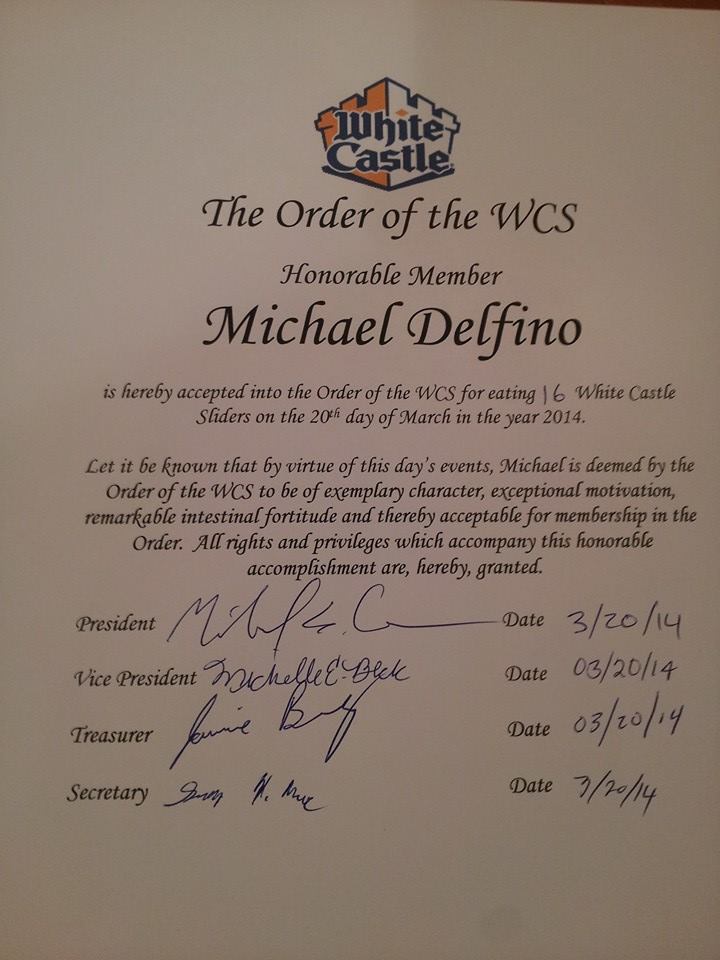 White Castle
The Order of the WCS
Honorable Member
Michael Delfino
is hereby accepted into the Order of the WCS for eating 16 White Castle
Sliders on the 20th day of March in the year 2014.
Let it be known that by virtue of this day's events, Michael is deemed by the
Order of the WCS to be of exemplary character, exceptional motivation,
remarkable intestinal fortitude and thereby acceptable for membership in the
Order. All rights and privileges which accompany this honorable
accomplishment are, hereby, granted.
President Date 3/20/14
Vice President Michelle E. Beck Date 03/20/14
Treasurer Date 03/20/14
Secretary Date 3/20/14